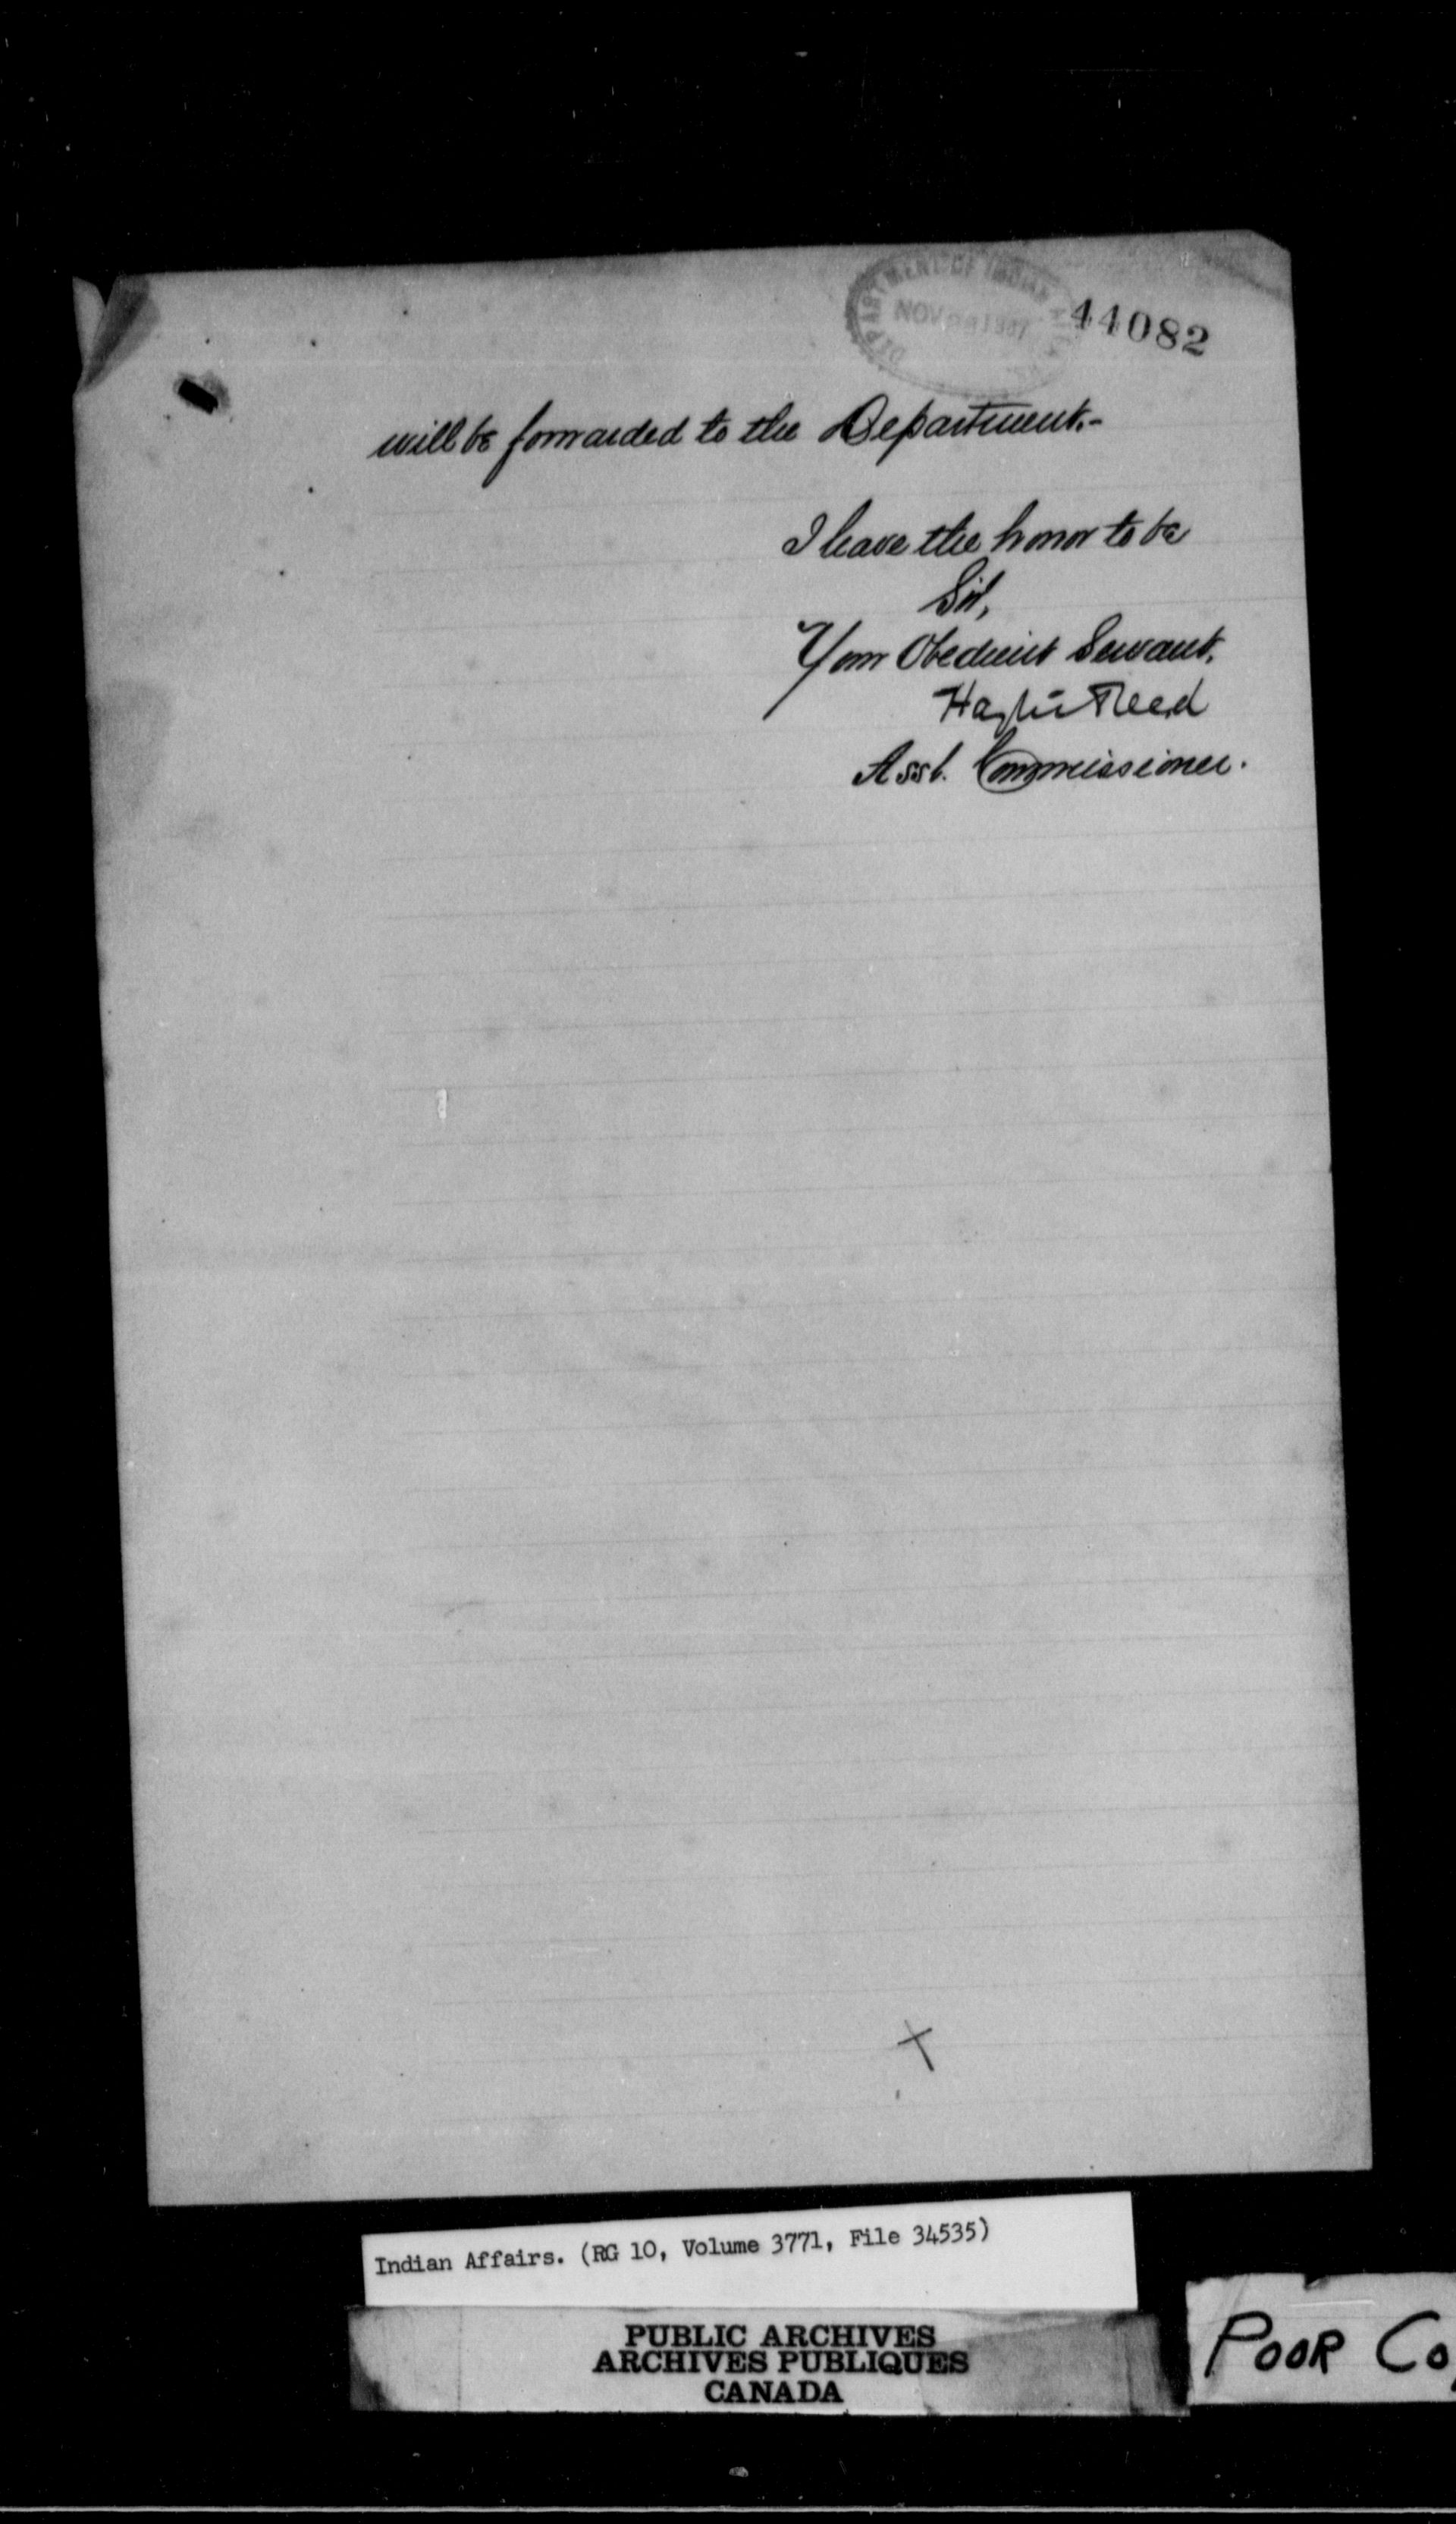 DEPARTMENT OF INDIAN
NOV 1887
44082
will be forwarded to the Department.-
I have the honor to be
Sir,
Your Obedient Servant,
Hayter Reed
Asst. Commissioner.
Indian Affairs. (RG 10, Volume 3771, File 34535)
PUBLIC ARCHIVES
ARCHIVES PUBLIQUES
CANADA
POOR Co